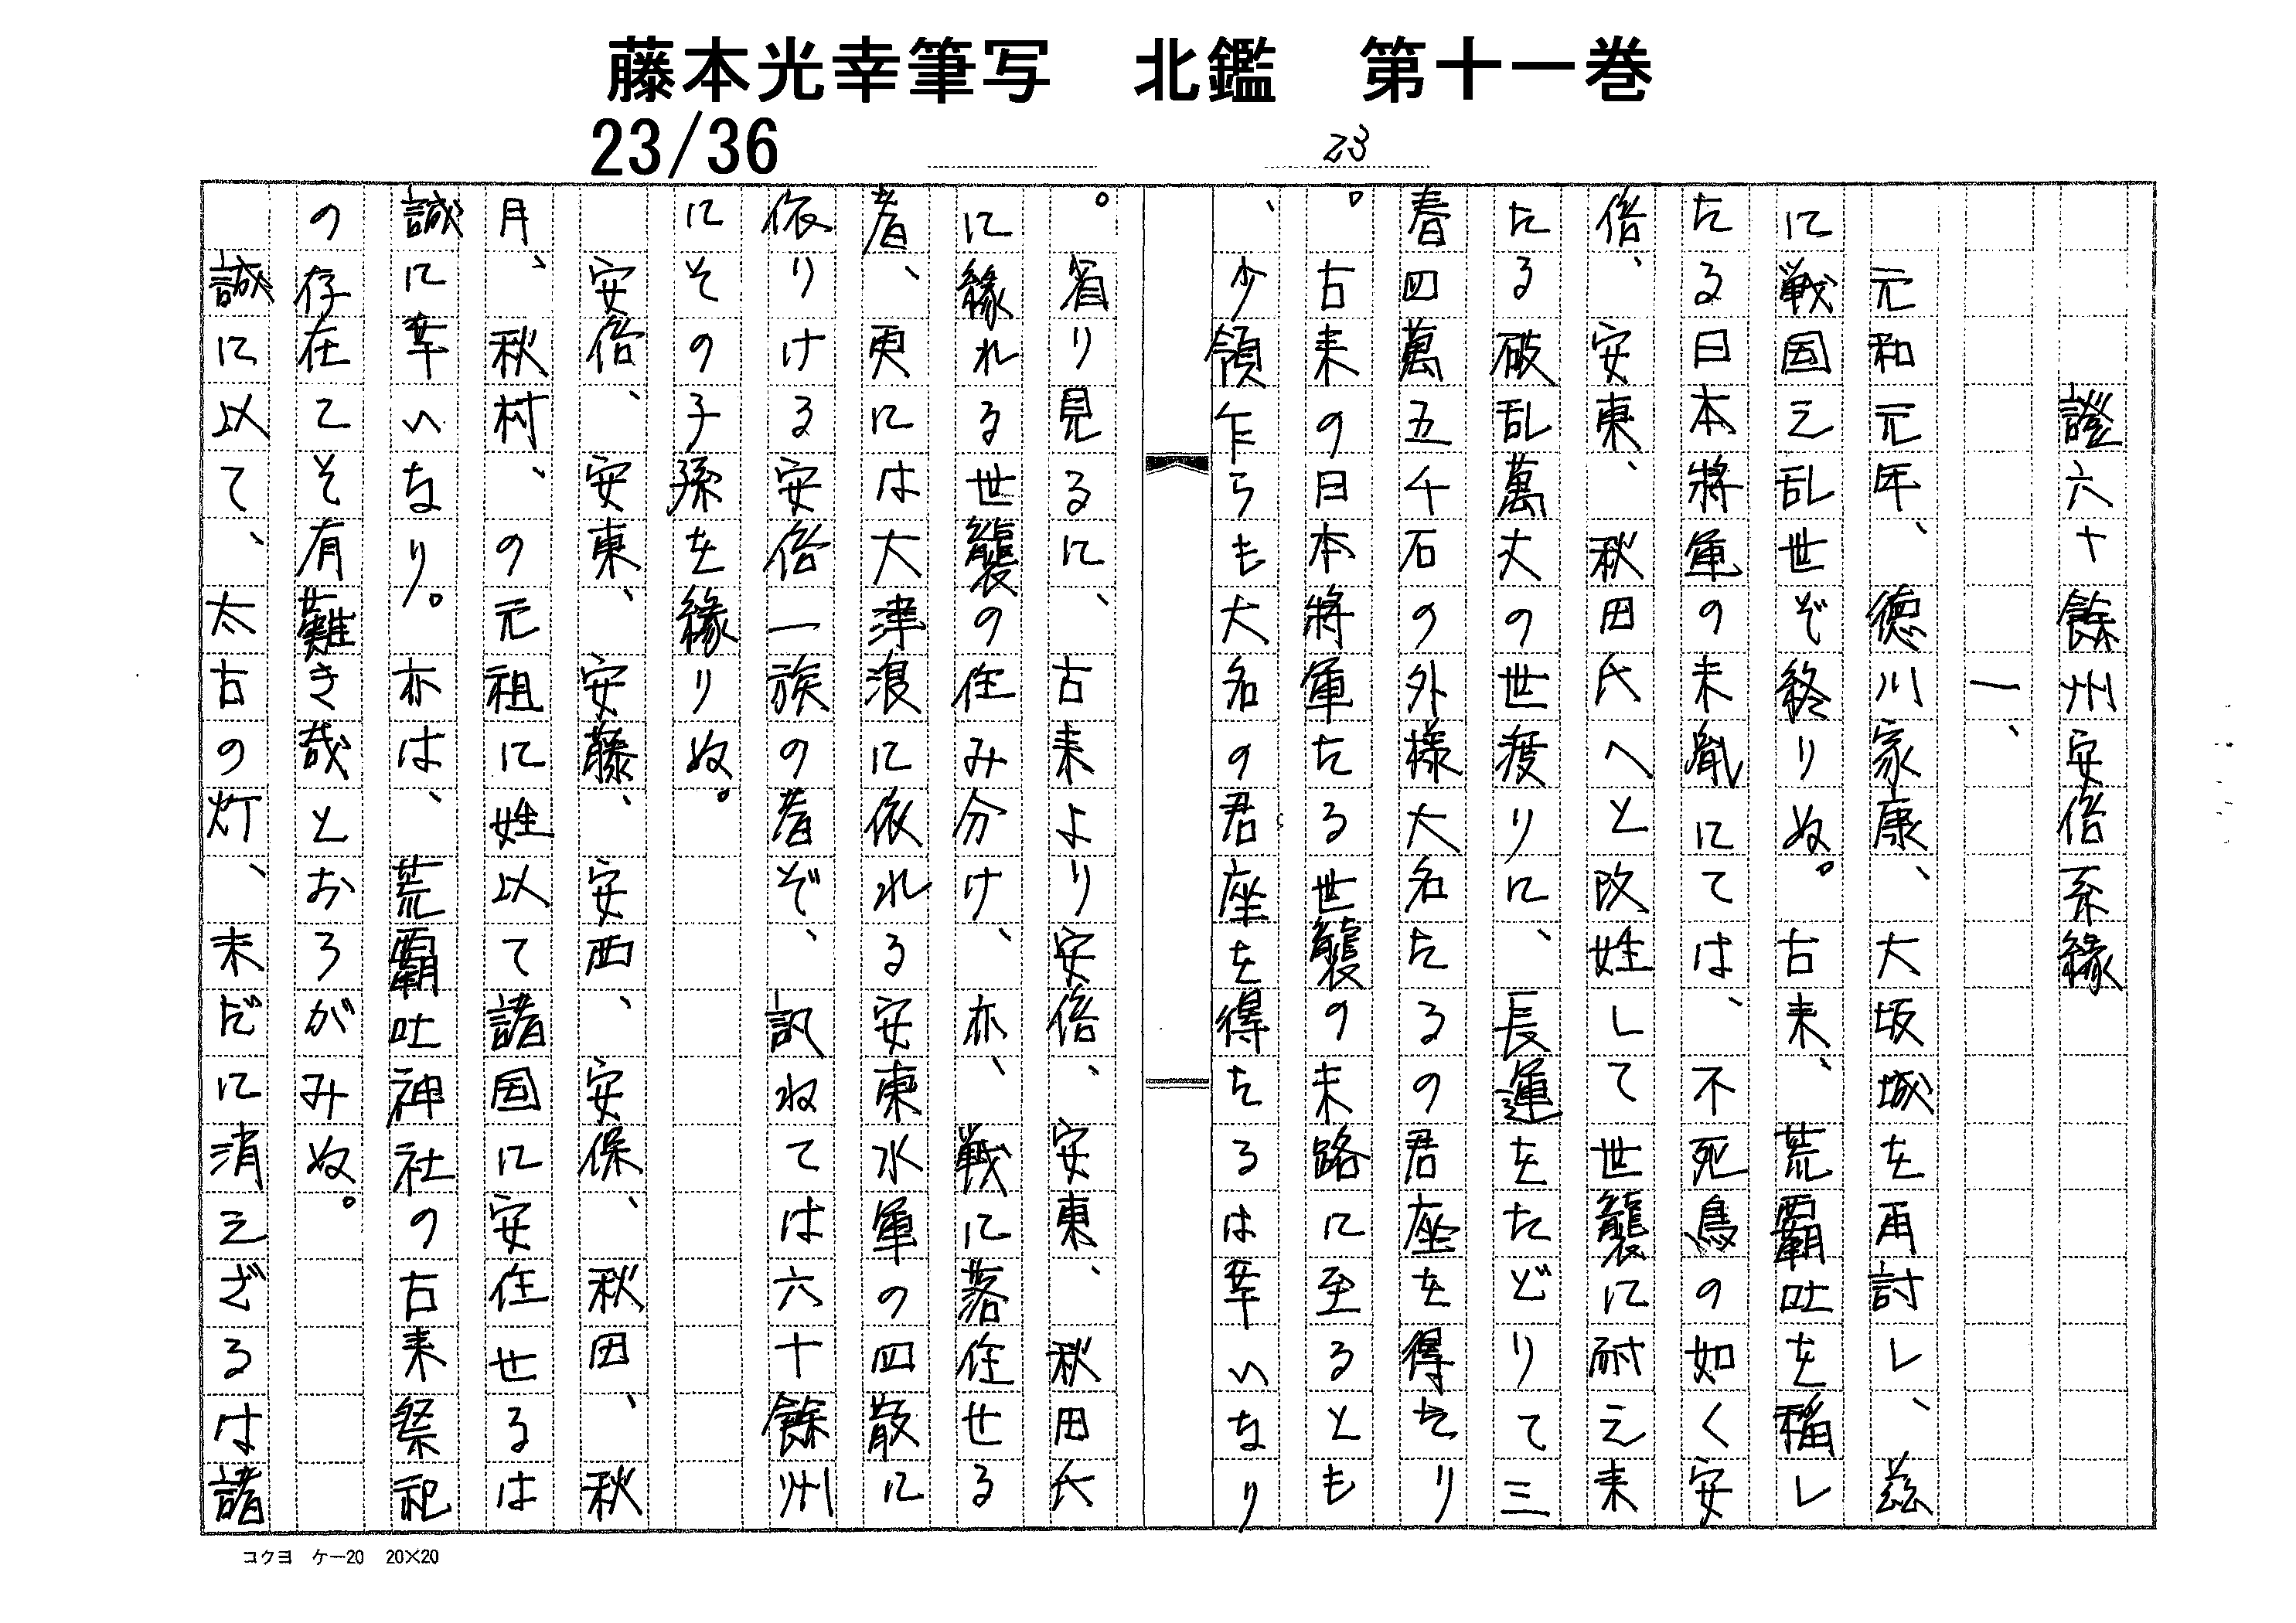 藤本光幸筆写　北鑑　第十一巻
23/36
23
證六十餘州安倍系縁
一、
元和元年、徳川家康、大坂城を再討し、茲
に戦国之乱世ぞ終りぬ。古来、荒覇吐を稱し
た る日本将軍の末胤にては、不死鳥の如く安
倍、安東、秋田氏へと改姓して世襲に耐え来
た る破乱萬丈の世渡りに、長運をたどりて三
春四萬五千石の外様大名たるの君座を得たり
。古来の日本将軍たる世襲の末路に至るとも
、少領乍らも大名の君座を得たるは幸いなり
。省り見るに、古来より安倍、安東、秋田氏
に縁れる世襲の住み分け、亦、戦に落住せる
者、更には大津浪に依れる安東水軍の四散に
依りける安倍一族の者ぞ、訊ねては六十餘州
にその子孫を縁りぬ。
安倍、安東、安藤、安西、安保、秋田、秋
月、秋村、の元祖に姓以て諸国に安住せるは
誠に幸いなり。亦は、荒覇吐神社の古来祭祀
の存在てそ有難き哉とおろがみぬ。
誠に以て、太古の灯、未だに消えざるは諸
コクヨ　ケー20　20×20